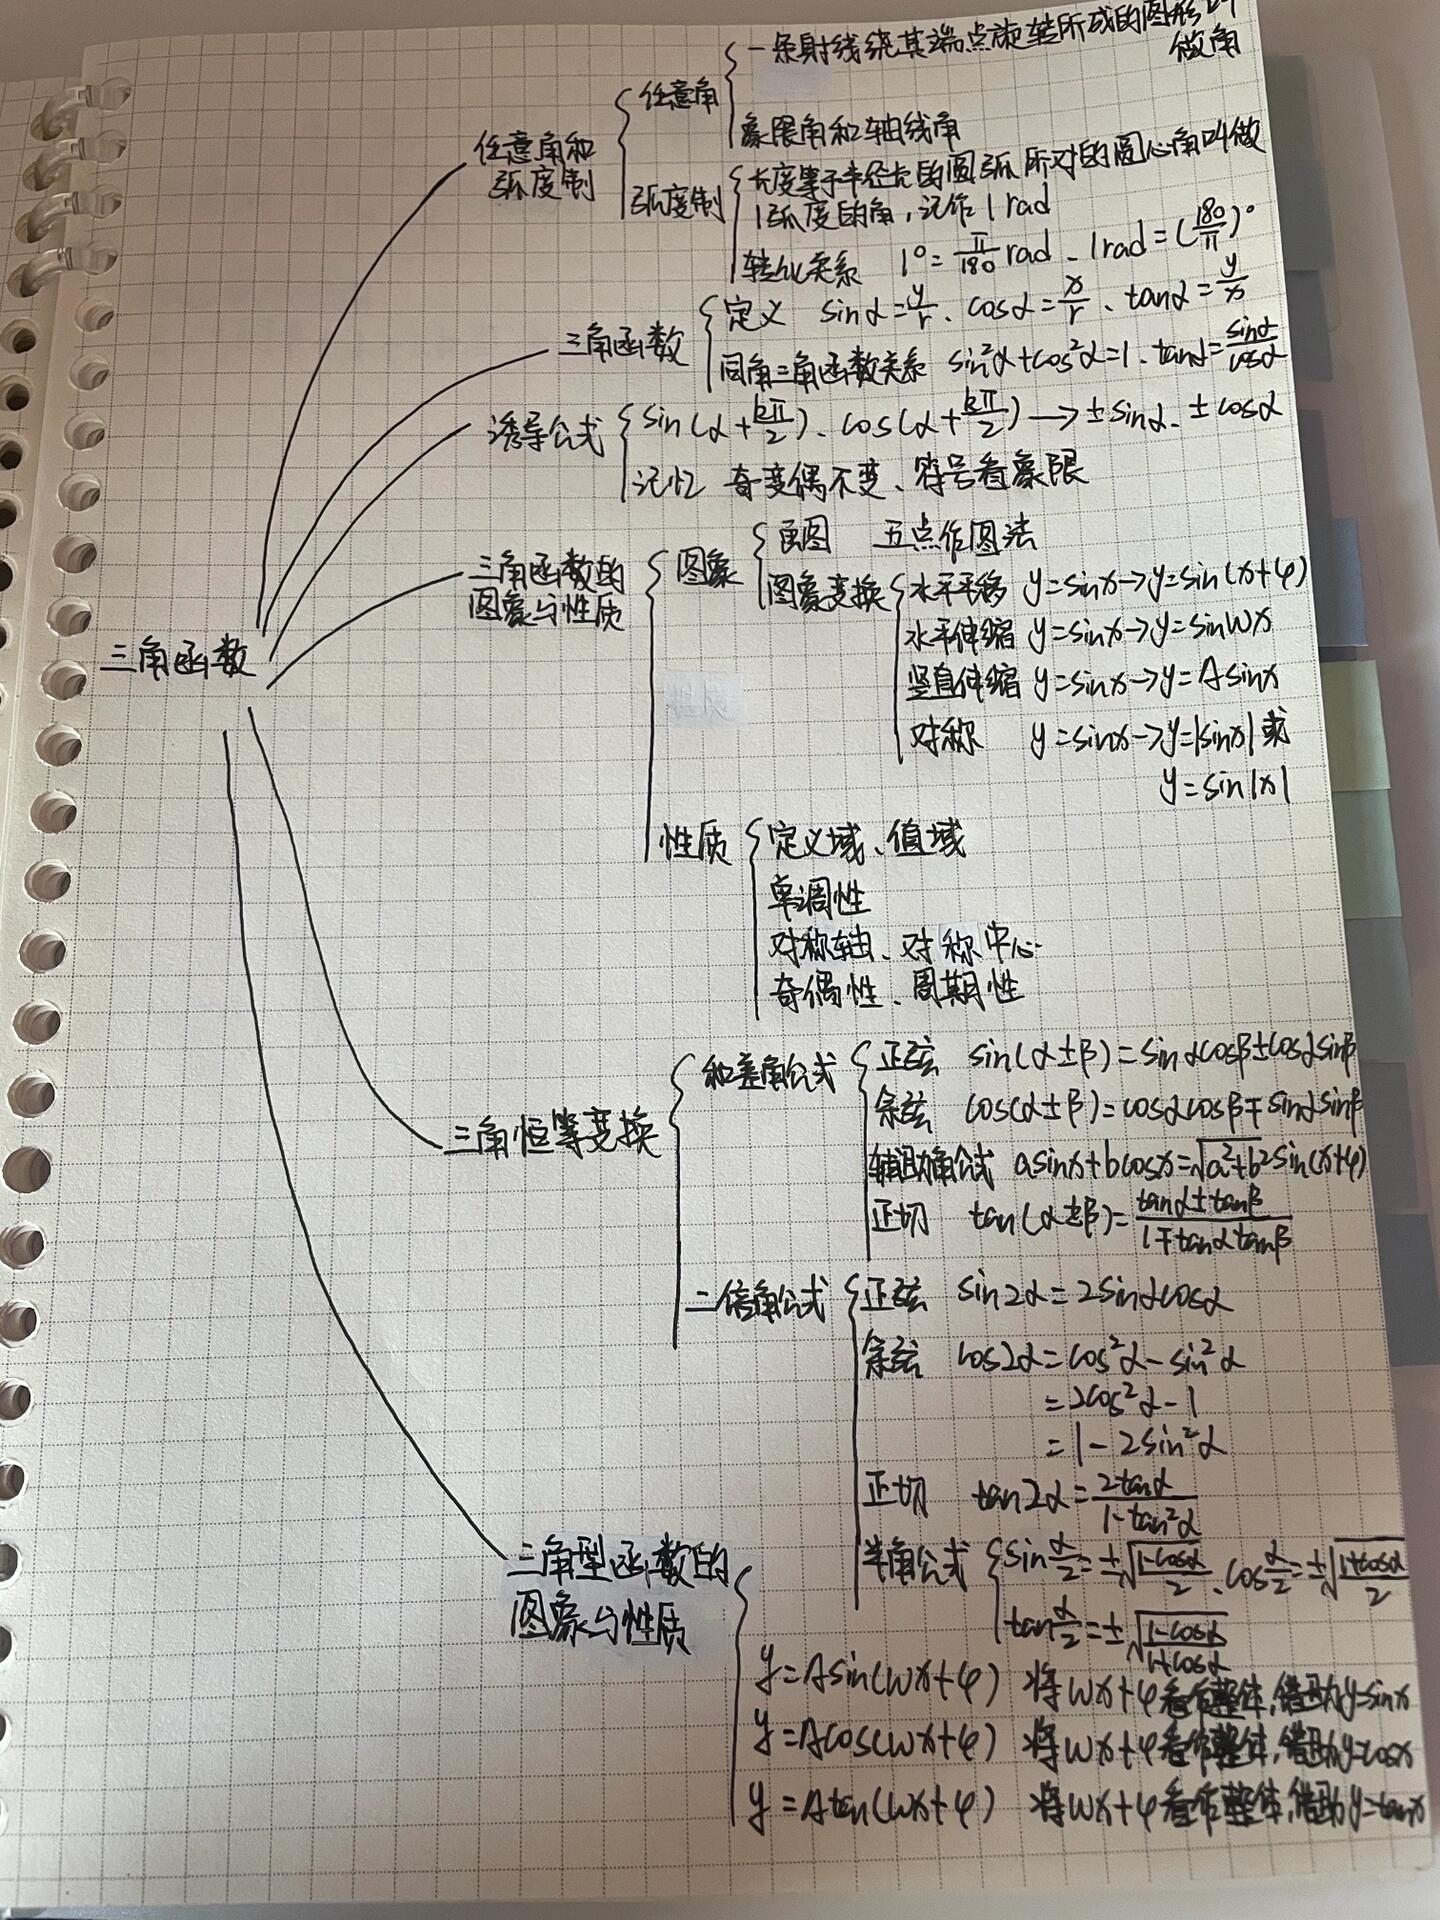 一条射线绕其端点旋转所成的图形叫
做角
任意角
象限角和轴线角
任意角和
弧度制
弧度制
长度等于半径长的圆弧所对的圆心角叫做
1弧度的角,记作1rad
转化关系 1°=π/180 rad、1rad=(180/π)°
三角函数
定义 sinα=y/r、cosα=x/r、tanα=y/x
同角三角函数关系 sin²α+cos²α=1、tanα=sinα/cosα
诱导公式
sin(α+kπ/2)、cos(α+kπ/2)→±sinα、±cosα
记忆 奇变偶不变、符号看象限
三角函数的
图象与性质
图象
画图 五点作图法
图象变换
水平平移 y=sinx→y=sin(x+φ)
水平伸缩 y=sinx→y=sinωx
竖直伸缩 y=sinx→y=Asinx
对称 y=sinx→y=|sinx|或
y=sin|x|
三角函数
性质
定义域、值域
单调性
对称轴、对称中心
奇偶性、周期性
三角恒等变换
和差角公式
正弦 sin(α±β)=sinαcosβ±cosαsinβ
余弦 cos(α±β)=cosαcosβ∓sinαsinβ
辅助角公式 asinx+bcosx=√(a²+b²)sin(x+φ)
正切 tan(α±β)=(tanα±tanβ)/(1∓tanαtanβ)
二倍角公式
正弦 sin2α=2sinαcosα
余弦 cos2α=cos²α-sin²α
=2cos²α-1
=1-2sin²α
正切 tan2α=2tanα/(1-tan²α)
半角公式
sin α/2=±√((1-cosα)/2)、cos α/2=±√((1+cosα)/2)
tan α/2=±√((1-cosα)/(1+cosα))
三角型函数的
图象与性质
y=Asin(ωx+φ) 将ωx+φ看作整体,借助y=sinx
y=Acos(ωx+φ) 将ωx+φ看作整体,借助y=cosx
y=Atan(ωx+φ) 将ωx+φ看作整体,借助y=tanx